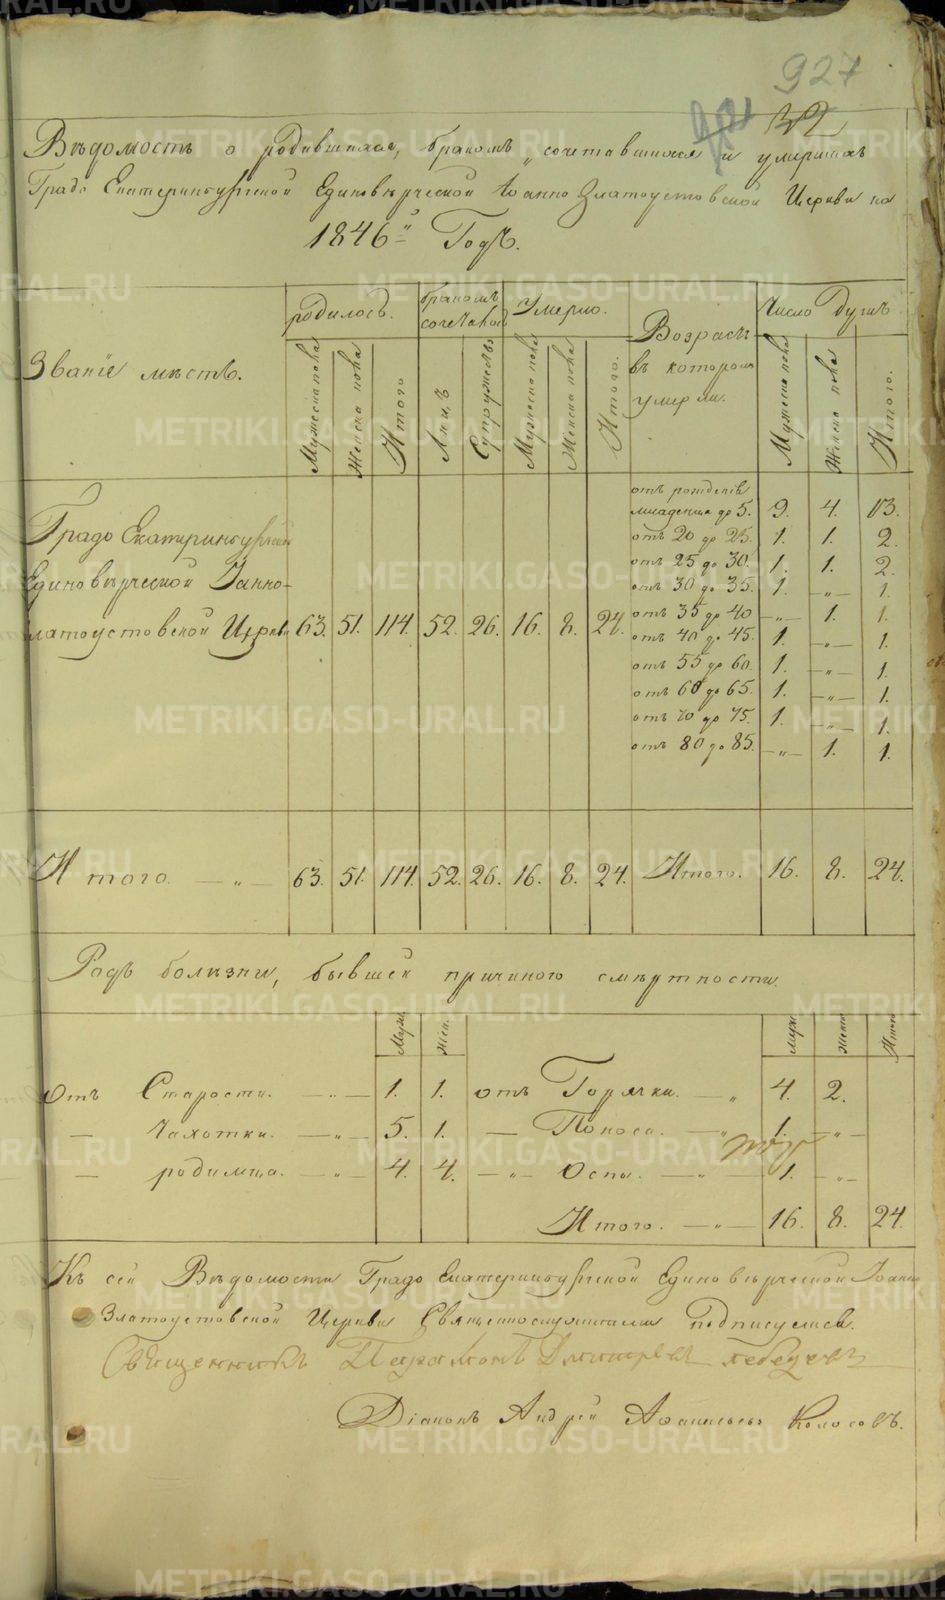 927
32
Вѣдомость о родившихся, бракомъ сочетавшихся и умершихъ
Градо Екатеринбургской Единовѣрческой Іоанно Златоустовской Церкви на
1846й Годъ.
Званіе мѣстъ.
родилось.
бракомъ сочетавш
Умерло.
Возрастъ въ которомъ умерли.
Число Душъ
Мужеска пола
Женска пола
Итого
Лицъ
Супружествъ
Мужеска пола
Женска пола
Итого.
Мужеска пола
Женска пола
Итого.
Градо Екатеринбургской
Единовѣрческой Іанно-
златоустовской Церкви 63. 51. 114. 52. 26. 16. 8. 24.
отъ рожденія
младенца до 5. 9. 4. 13.
отъ 20 до 25. 1. 1. 2.
отъ 25 до 30. 1. 1. 2.
отъ 30 до 35. 1. „ 1.
отъ 35 до 40 „ 1. 1.
отъ 40 до 45. 1. „ 1.
отъ 55 до 60. 1. „ 1.
отъ 60 до 65. 1. „ 1.
отъ 70 до 75. 1. „ 1.
отъ 80 до 85. „ 1. 1.
Итого. „ 63. 51. 114. 52. 26. 16. 8. 24. Итого. 16. 8. 24.
Родъ болѣзни, бывшей причиною смертности.
Муж. Жен. муж женс Итого
Отъ Старости. 1. 1. отъ Горячки. „ 4. 2.
— Чахотки. „ 5. 1. — Поноса. „ 1. „
— родимца. „ 4. 4. „ Оспы. „ 1. „
Итого. „ 16. 8. 24.
Къ сей Вѣдомости Градо Екатеринбургской Единовѣрческой Іоанно
Златоустовской Церкви Священнослужители Подписуемся.
Священникъ Парамонъ Димитріевъ Лебедевъ
Діаконъ Андрей Афанасьевъ Колосовъ.
METRIKI.GASO-URAL.RU